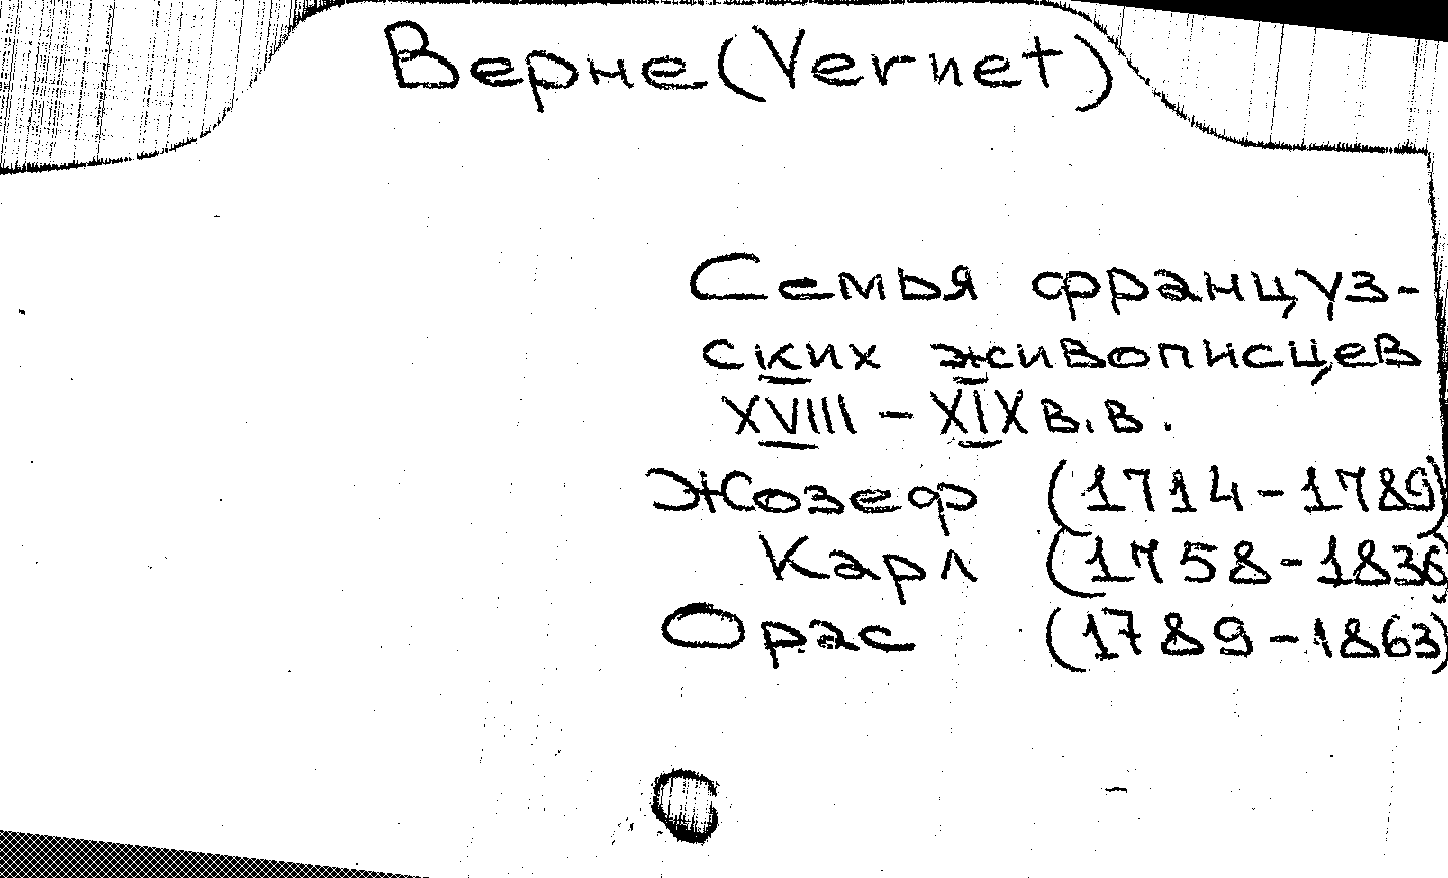 Верне (Vernet)
Семья француз-
ских живописцев
XVIII - XIX в.в.
Жозеф (1714-1789)
Карл (1758-1836)
Орас (1789-1863)